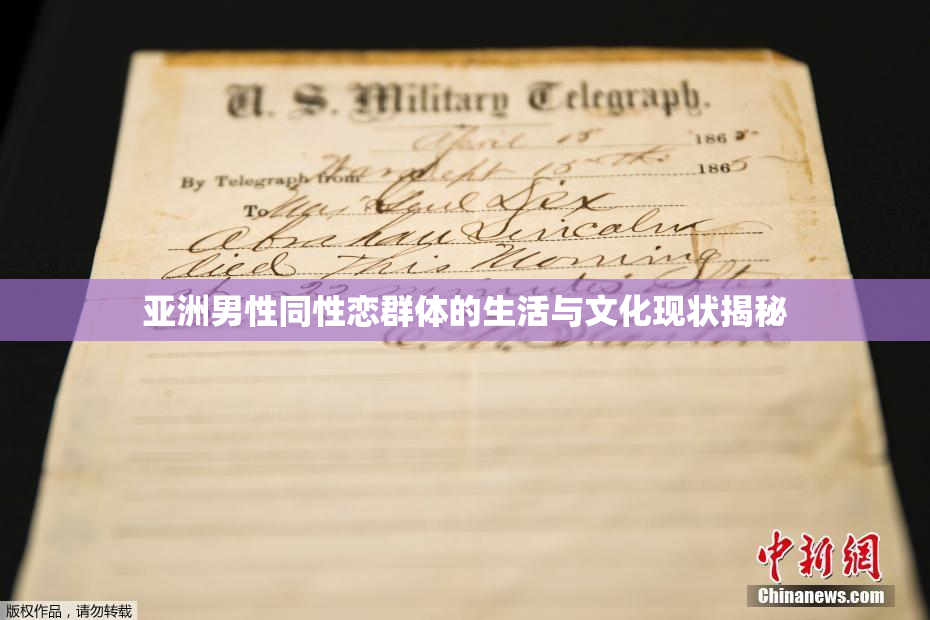 U. S. Military Telegraph.
April 15 1865
By Telegraph from War Dept 15th 1865
To Maj Genl Dix
Abraham Lincoln
died This Morning
at 22 minutes after
亚洲男性同性恋群体的生活与文化现状揭秘
E. M. Stanton
中新网
Chinanews.com
版权作品，请勿转载